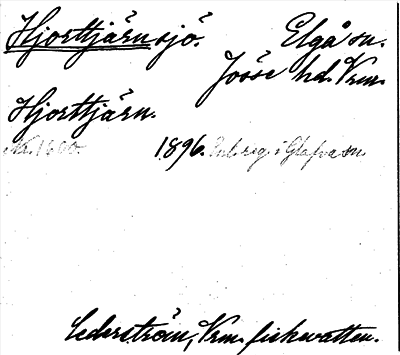 Hjorttjärnsjö. Elgå sn.
Jösse hd. Vrm.
Hjorttjärn.
1896. Enl. reg. i Glafva sn
Cederström, Vrm. fiskvatten.